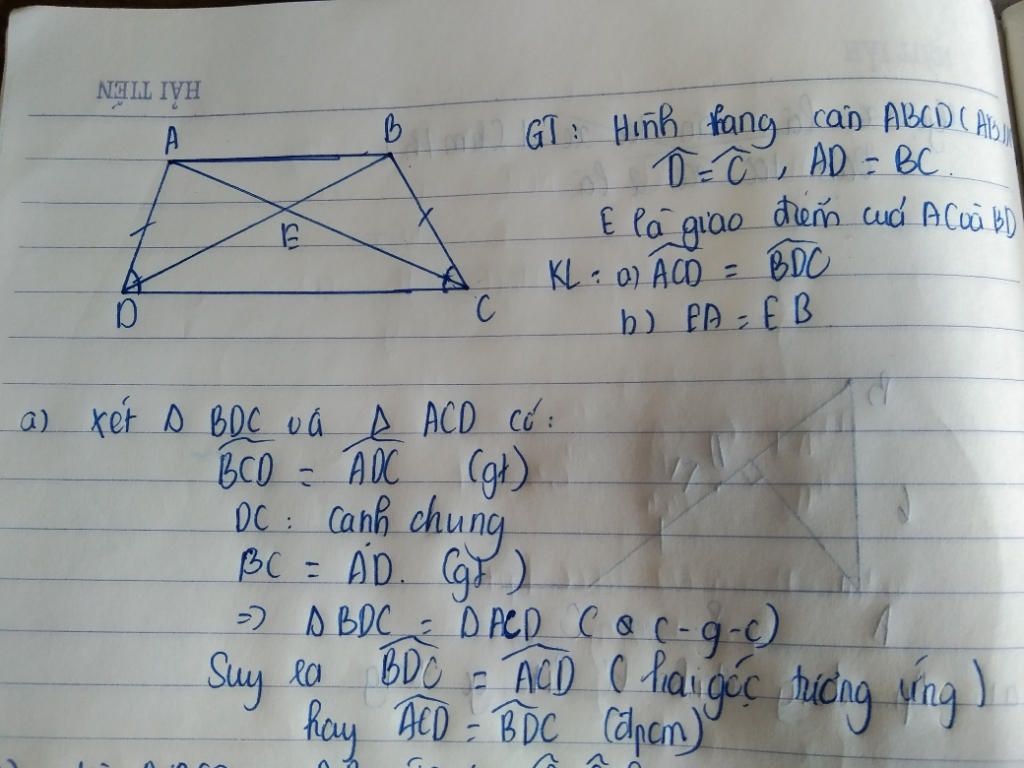 HẢI TIẾN
A
B
E
D
C
GT: Hình thang cân ABCD (AB//
D̂ = Ĉ, AD = BC.
E là giao điểm cuả AC và BD
KL: a) ACD = BDC
b) EA = EB
a) Xét Δ BDC và Δ ACD có:
BCD = ADC (gt)
DC: cạnh chung
BC = AD. (gt)
=> Δ BDC = Δ ACD ( c-g-c)
Suy ra BDC = ACD (hai góc tương ứng)
hay ACD = BDC (đpcm)